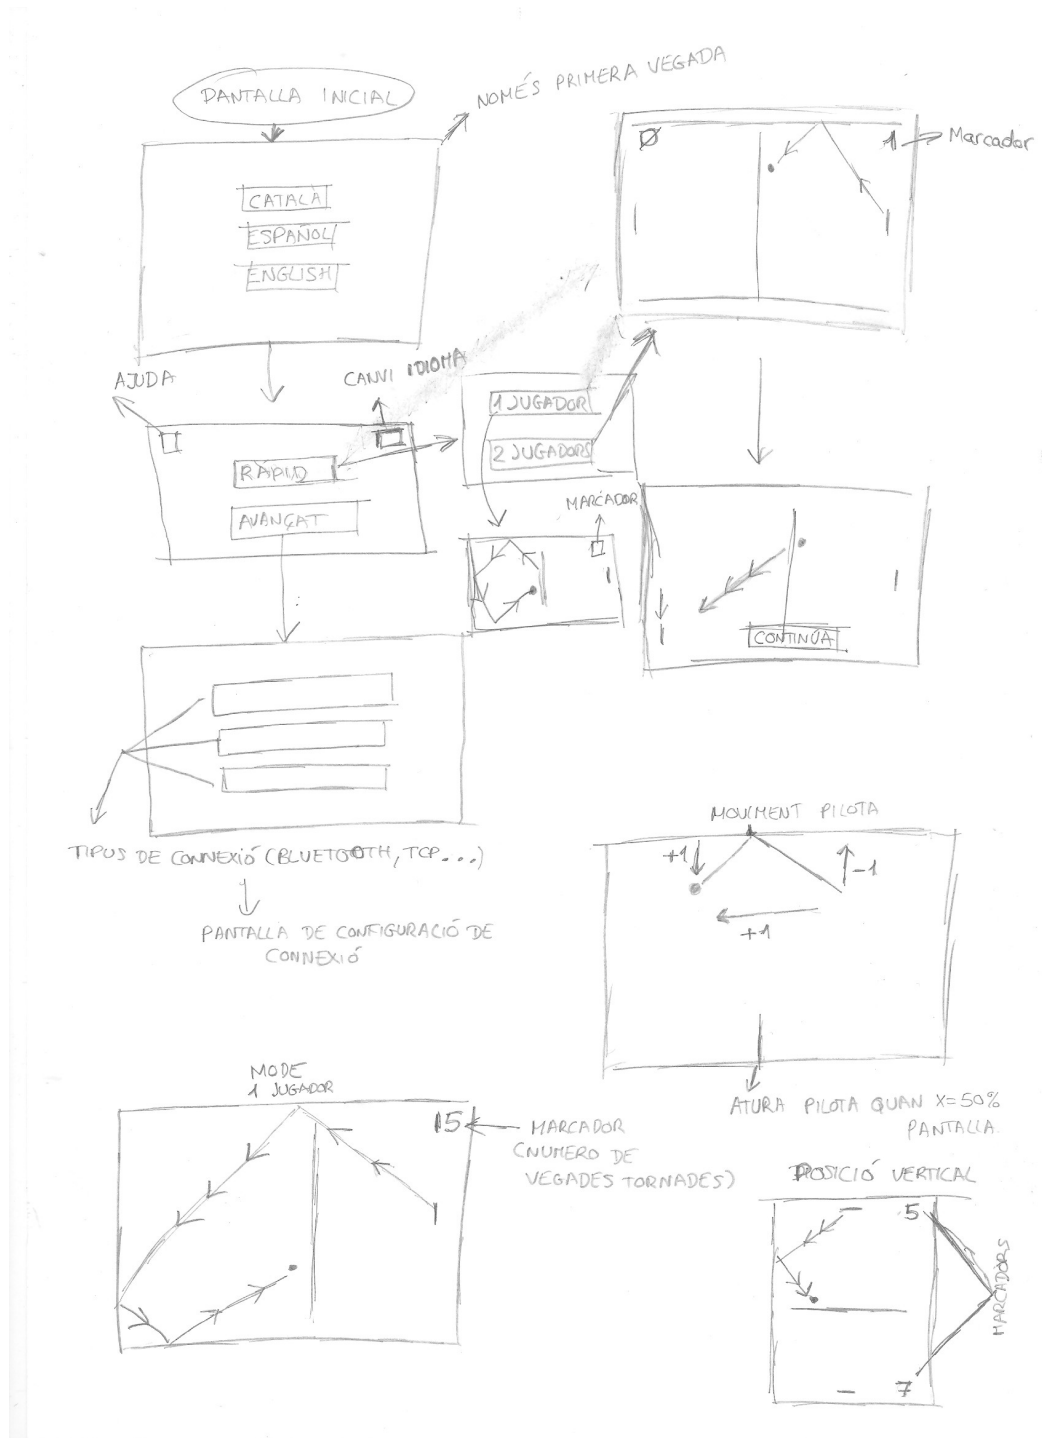 PANTALLA INICIAL
NOMÉS PRIMERA VEGADA
CATALÀ
ESPAÑOL
ENGLISH
Ø
1
Marcador
AJUDA
CANVI IDIOMA
RÀPID
AVANÇAT
1 JUGADOR
2 JUGADORS
MARCADOR
CONTINÚA
TIPUS DE CONNEXIÓ (BLUETOOTH, TCP...)
PANTALLA DE CONFIGURACIÓ DE
CONNEXIÓ
MOVIMENT PILOTA
+1
-1
+1
ATURA PILOTA QUAN X=50%
PANTALLA.
MODE
1 JUGADOR
15
MARCADOR
(NUMERO DE
VEGADES TORNADES)
POSICIÓ VERTICAL
5
7
MARCADORS